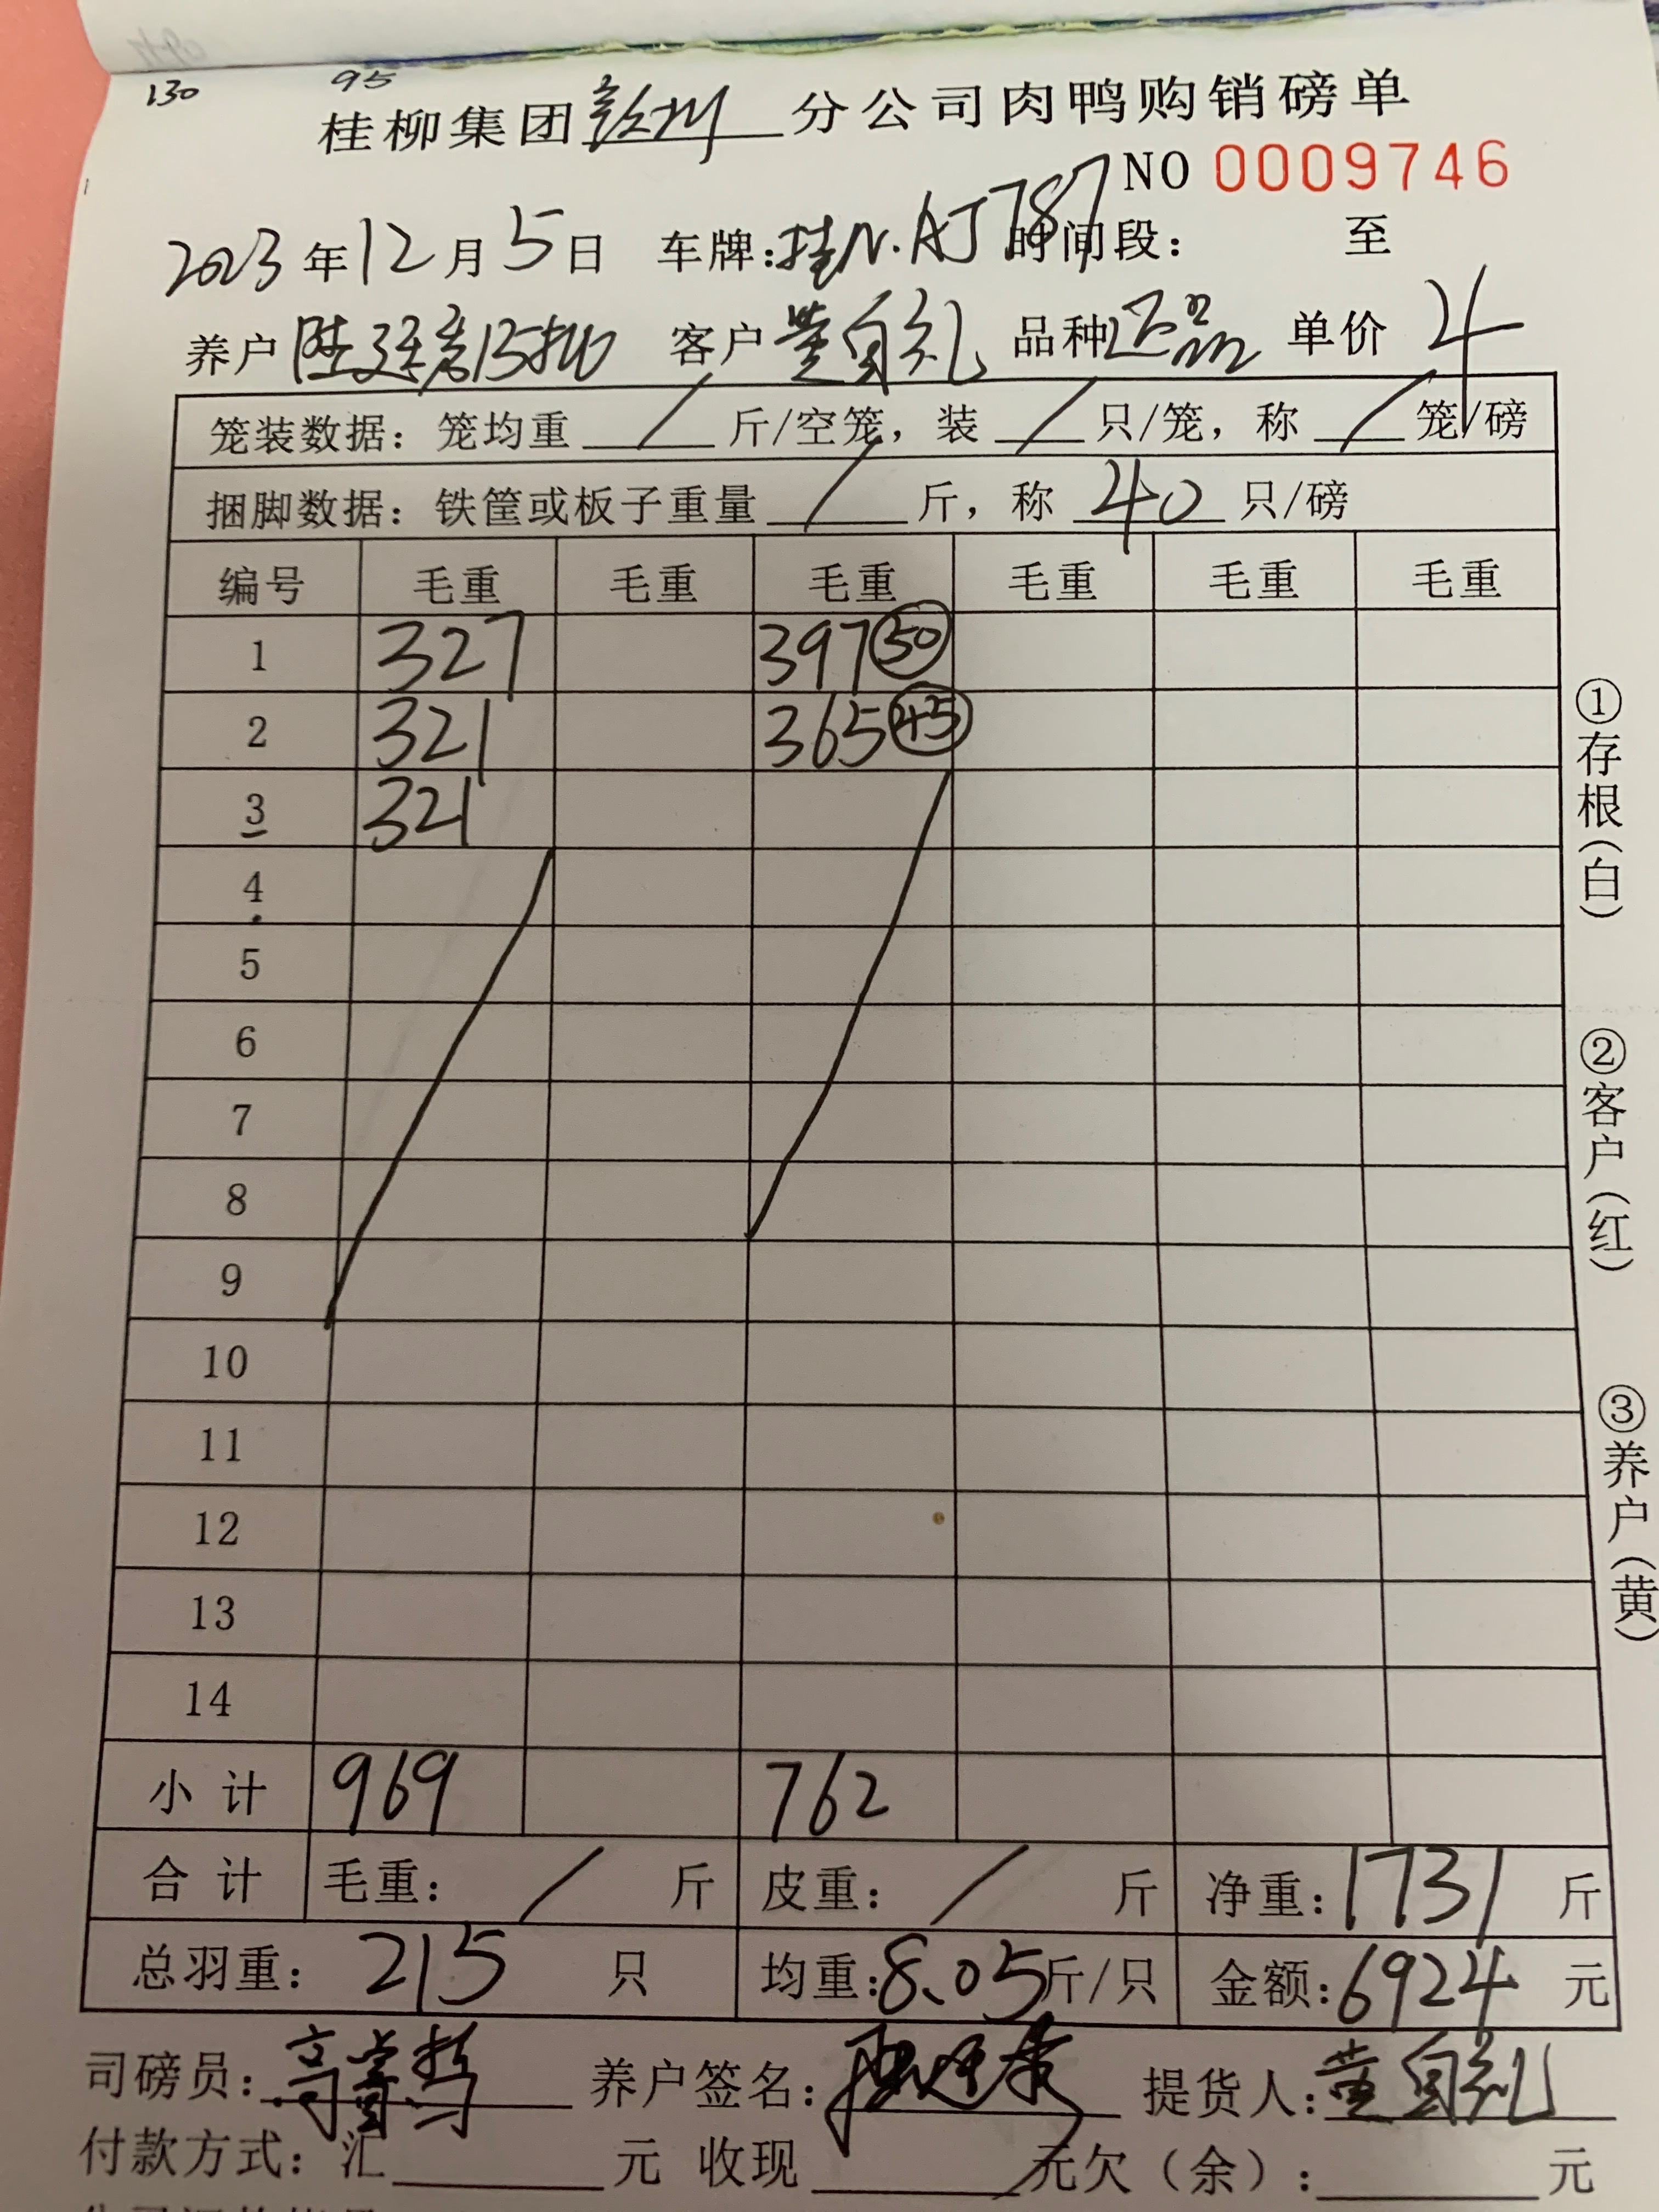 130 95
桂柳集团钦州分公司肉鸭购销磅单
NO 0009746
2023年12月5日 车牌:桂N.AJ787 时间段: 至
养户 陆廷 客户 黄自礼 品种 正品 单价 4
笼装数据: 笼均重 / 斤/空笼, 装 / 只/笼, 称 / 笼/磅
捆脚数据: 铁筐或板子重量 / 斤, 称 40 只/磅
编号 毛重 毛重 毛重 毛重 毛重 毛重
1 327 397 50
2 321 365 45
3 321
4
5
6
7
8
9
10
11
12
13
14
小计 969 762
合计 毛重: / 斤 皮重: / 斤 净重: 1731 斤
总羽重: 215 只 均重: 8.05 斤/只 金额: 6924 元
司磅员: 养户签名: 提货人: 黄自礼
付款方式: 汇 元 收现 元 欠(余): 元
①存根(白)
②客户(红)
③养户(黄)